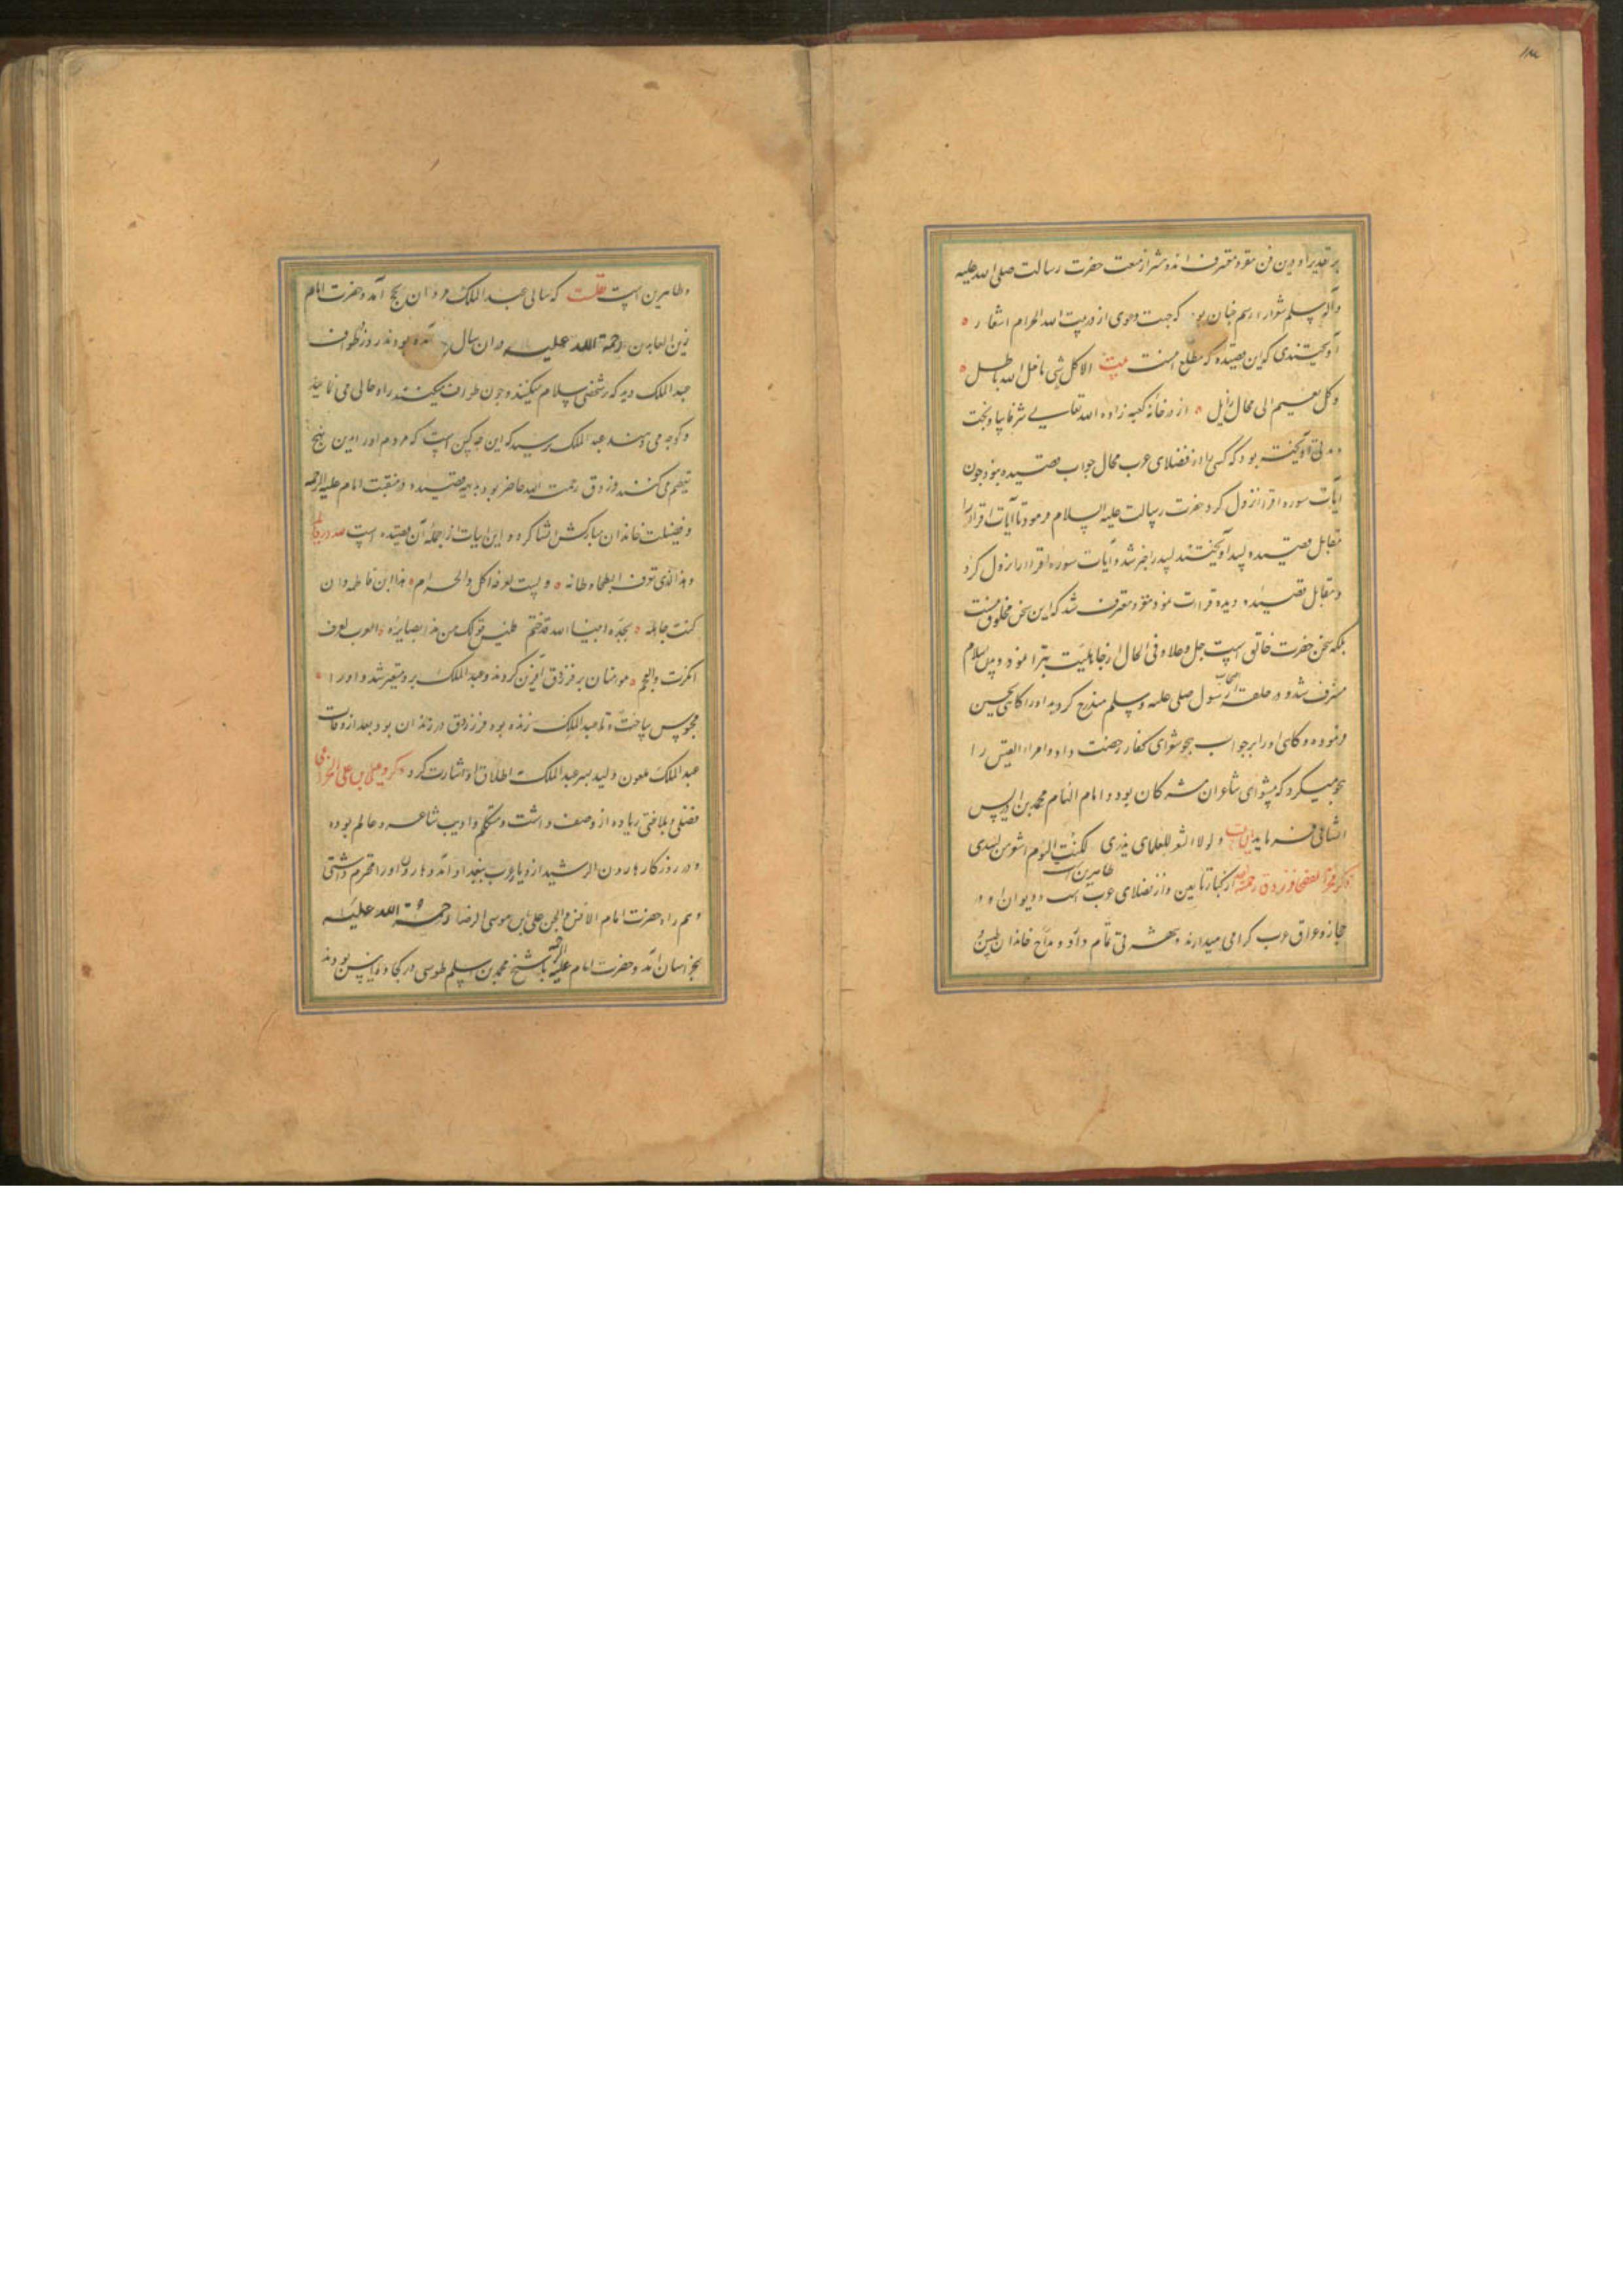 ۱۳
بر تقدیر او درین فن مقر و معترف اند و پیشتر از بعثت حضرت رسالت صلی الله علیه
وآله وسلم شعرا را رسم چنان بود که جهت دعوی از در بیت الله الحرام اشعار
آویختندی که این قصیده که مطلع اینست بیت الا کل شی ما خلا الله باطل
و کل نعیم الی محال زایل از در خانه کعبه زاده الله تعالی شرفا بیاویخت
و مدتی آویخته بود که کسی را از فضلای عرب مجال جواب قصیده نبود چون
آیات سوره اقرا نزول کرد حضرت رسالت علیه السلام فرمود تا آیات اقرا را
مقابل قصیده لبید آویختند لبید را خبر شد و آیات سوره اقرا را نزول کرد
در مقابل قصیده دیده قراات نمود و مقر و معترف شد که این سخن مخلوق نیست
بلکه سخن حضرت خالق است جل و علا و فی الحال از جاهلیت تبرا نموده و بدین اسلام
مشرف شد و در حلقه اصحاب رسول صلی علیه وسلم مندرج گردید او را گاهی تحسین
فرموده و گاهی او را بر جواب هجو شعرای کفار رخصت داد و امراء القیس را
هجو میکرد که پیشوای شاعران مشرکان بود و امام الهام محمد بن ادریس
الشافعی فرماید بیت و لولا الشعر للعلمای یزری لکنت الیوم اشعر من لبیدی
ذکر فصحا فرزدق رحمة الله از کبار تابعین و از فضلای عرب است و دیوان او در
حجاز و عراق عرب گرامی میدارند و شهرتی تمام دارد و مداح خاندان طیبین و
طاهرین است
و طاهرین است حکایت که سالی عبد الملک مروان بحج آمد و حضرت امام
زین العابدین رحمة الله علیه در ان سال آمده بودند در روز طواف
عبد الملک دید که شخصی سلام میکنند و چون طواف میکنند راه خالی می نمایند
و کوچه می دهند عبد الملک پرسید که این چه کس است که مردم او را بدین نهج
تعظیم می کنند فرزدق رحمت الله حاضر بود بدیهه قصیده در منقبت امام علیه الرحمه
و فضیلت خاندان مبارکش انشا کرد و این ابیات از جمله آن قصیده است
هذا الذی تعرف البطحا وطاته و البیت یعرفه و الحل و الحرام هذا ابن فاطمه و ان
کنت جاهله بجده انبیا الله قد ختم فلیس قولک من هذا بضایره العرب تعرف
انکرت و العجم مومنان بر فرزدق آفرین کردند و عبد الملک برو متغیر شد و او را
محبوس ساخت و تا عبد الملک زنده بود فرزدق در زندان بود بعد از وفات
عبد الملک ملعون ولید پسر عبد الملک اطلاق او اشارت کرد ذکر دعبل بن علی الخزاعی
فضلی و بلاغتی زیاده از وصف داشت و متکلم و ادیب شاعر و عالم بوده
و در روزگار هارون الرشید از دیار عرب ببغداد آمد و هارون او را محترم داشتی
و همراه حضرت امام الانس و الجن علی بن موسی الرضا رحمة الله علیه
بخراسان آمد و حضرت امام علیه الرحمه با شیخ محمد بن سلم طوسی در کجاوه بودند